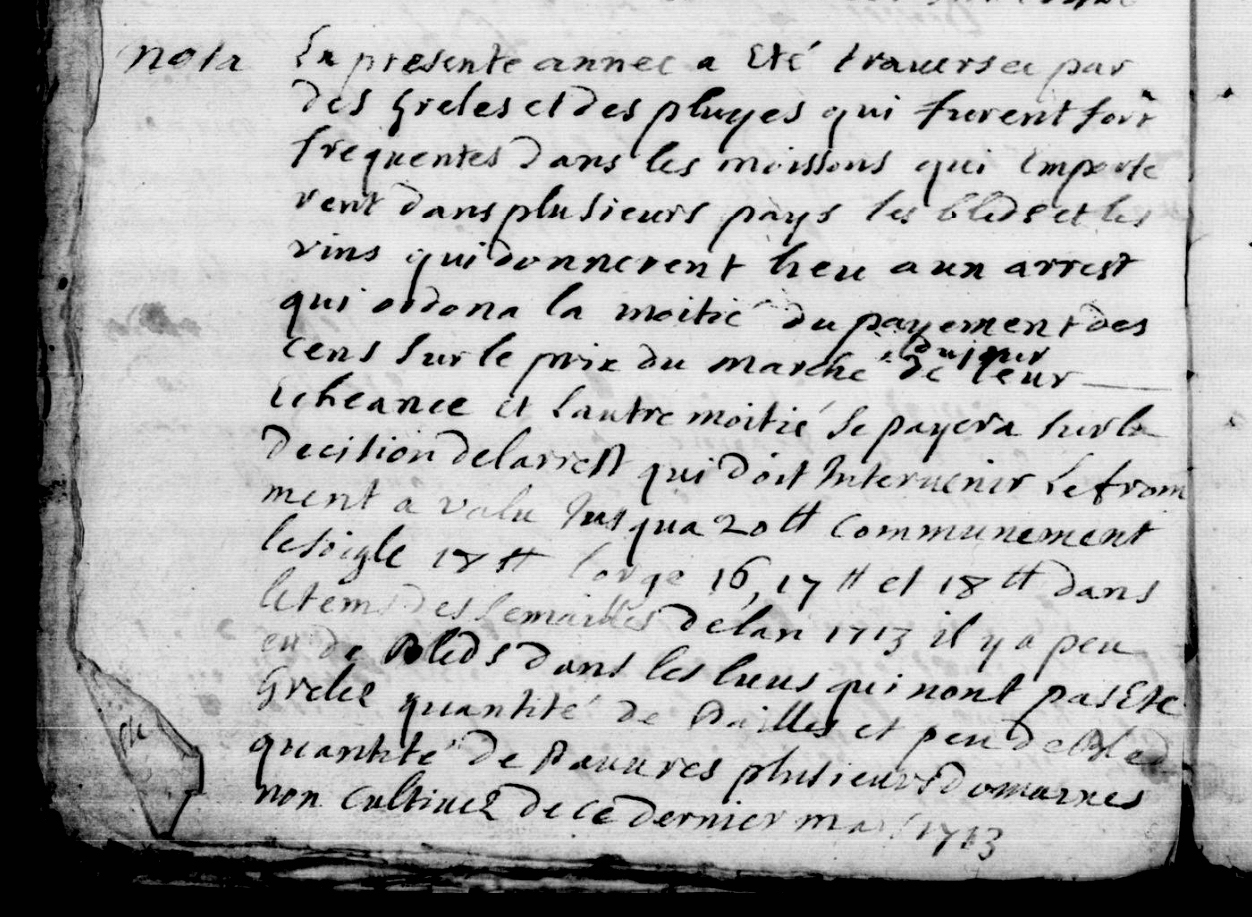 nota La presente annee a Eté trauersee par
des greles et des pluyes qui furent fort
frequentes dans les moissons qui Emporte
rent dans plusieurs pays les bleds et les
vins qui donnerent lieu a un arrest
qui ordona la moitié du payement des
cens sur le prix du marché du jour de leur
Echeance et lautre moitié se payera sur la
decision de larrest qui doit Interuenir Le from
ment a valu Jusqua 20 tt communement
le soigle 18 tt lorge 16, 17 tt et 18 tt dans
le tems des semailles de lan 1713 il y a peu
eu de Bleds dans les lieus qui nont pas Ete
Grelé quantité de Pailles et peu de Bled
quantité de Pauures plusieurs domaines
non cultiuez de ce dernier mars 1713